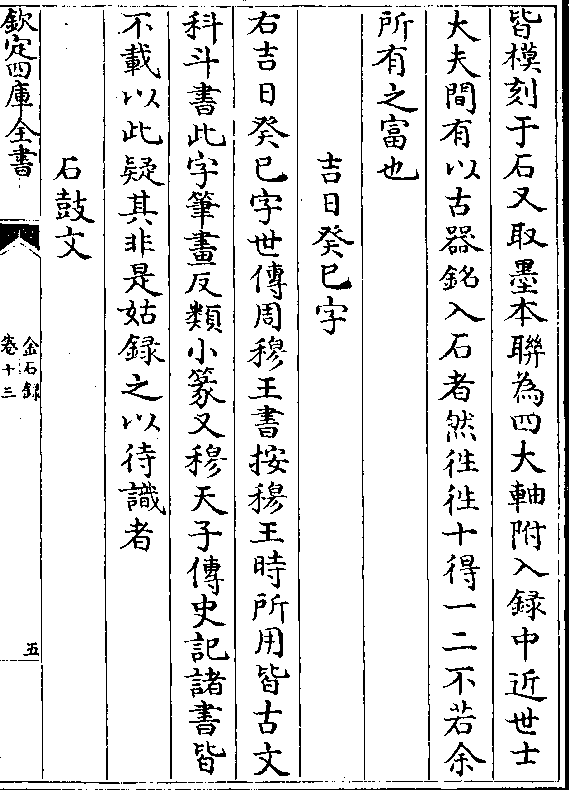 皆模刻于石又取墨本聨為四大軸附入録中近世士
大夫間有以古器銘入石者然徃徃十得一二不若余
所有之富也
吉日癸巳字
右吉日癸巳字世傳周穆王書按穆王時所用皆古文
科斗書此字筆畫反類小篆又穆天子傳史記諸書皆
不載以此疑其非是姑録之以待識者
石鼓文
欽定四庫全書
金石録
卷十三
五